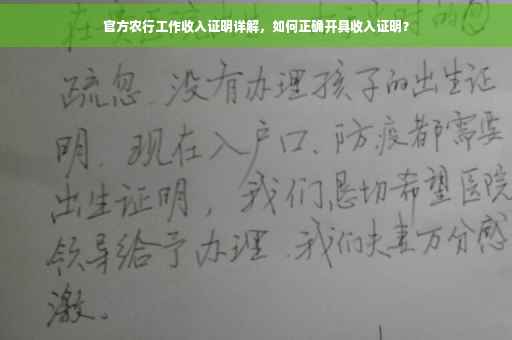 官方农行工作收入证明详解，如何正确开具收入证明？
在 时的
疏忽、没有办理孩子的出生证
明、现在入户口、防疫都需要
出生证明，我们恳切希望医院
领导给予办理、我们夫妻万分感
激。